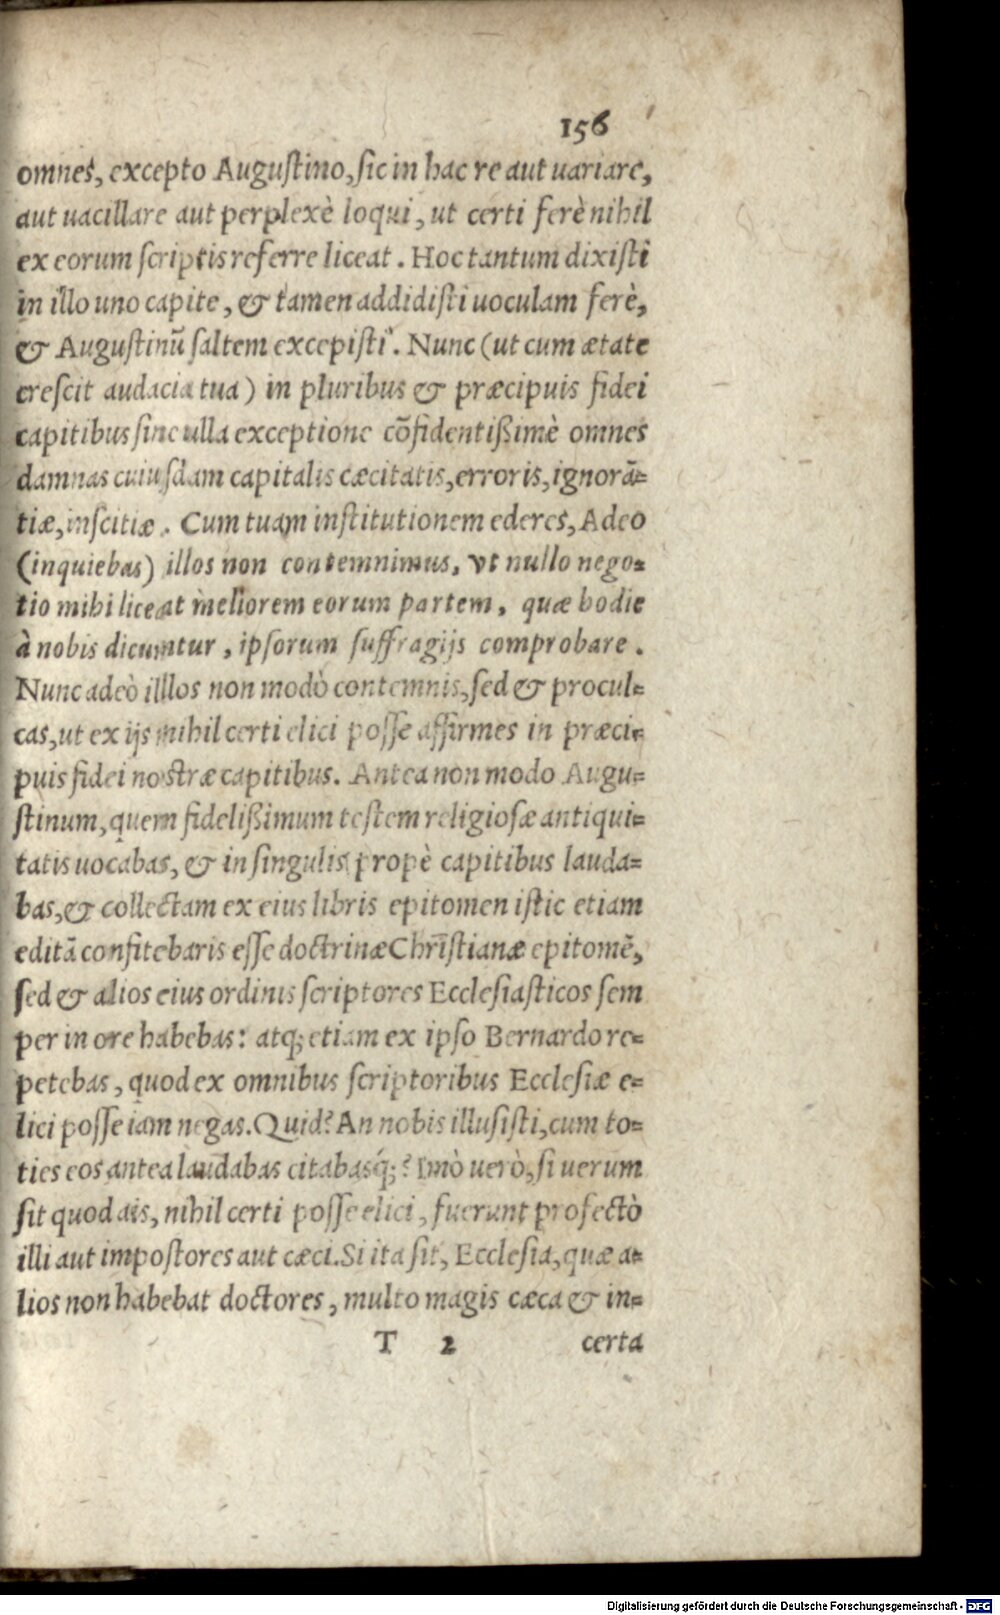 156
omnes, excepto Augustino, sic in hac re aut uariare,
aut uacillare aut perplexè loqui, ut certi ferè nihil
ex eorum scriptis referre liceat. Hoc tantum dixisti
in illo uno capite, & tamen addidisti uoculam ferè,
& Augustinū saltem excepisti. Nunc (ut cum ætate
crescit audacia tua) in pluribus & præcipuis fidei
capitibus sine ulla exceptione cōfidentißimè omnes
damnas cuiusdam capitalis cæcitatis, erroris, ignorā-
tiæ, inscitiæ. Cum tuam institutionem ederes, Adeo
(inquiebas) illos non contemnimus, vt nullo nego-
tio mihi liceat meliorem eorum partem, quæ hodie
à nobis dicuntur, ipsorum suffragijs comprobare.
Nunc adeò illlos non modò contemnis, sed & procul-
cas, ut ex ijs nihil certi elici posse affirmes in præci-
puis fidei nostræ capitibus. Antea non modo Augu-
stinum, quem fidelißimum testem religiosæ antiqui-
tatis uocabas, & in singulis propè capitibus lauda-
bas, & collectam ex eius libris epitomen istic etiam
editā confitebaris esse doctrinæ Christianæ epitomē,
sed & alios eius ordinis scriptores Ecclesiasticos sem
per in ore habebas: atq; etiam ex ipso Bernardo re-
petebas, quod ex omnibus scriptoribus Ecclesiæ e-
lici posse iam negas. Quid? An nobis illusisti, cum to-
ties eos antea laudabas citabasq́;? Imò uerò, si uerum
sit quod ais, nihil certi posse elici, fuerunt profectò
illi aut impostores aut cæci. Si ita sit, Ecclesia, quæ a-
lios non habebat doctores, multo magis cæca & in-
T 2 certa
Digitalisierung gefördert durch die Deutsche Forschungsgemeinschaft - DFG